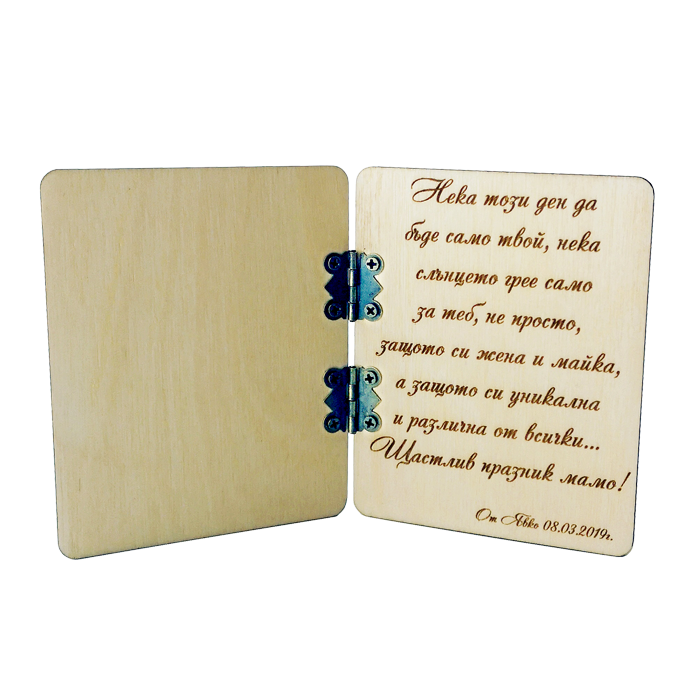 Нека този ден да
бъде само твой, нека
слънцето грее само
за теб, не просто,
защото си жена и майка,
а защото си уникална
и различна от всички...
Щастлив празник мамо!
От Явко 08.03.2019г.